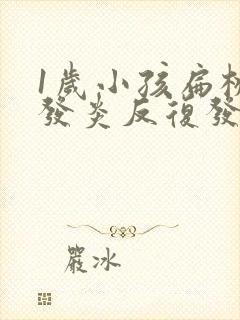 1歲小孩扁桃
發炎反復發
嚴冰